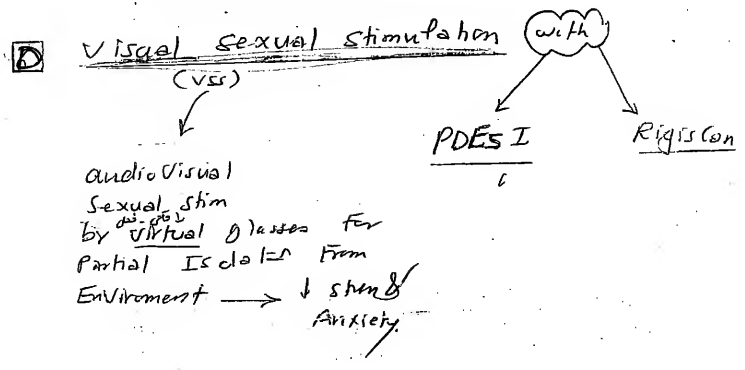 D Visual sexual stimulation with
(VSS)
PDE5 I RigisCan
audioVisual
Sexual stim
by virtual glasses For
Partial From
Enviroment → ↓ &
Anxiety